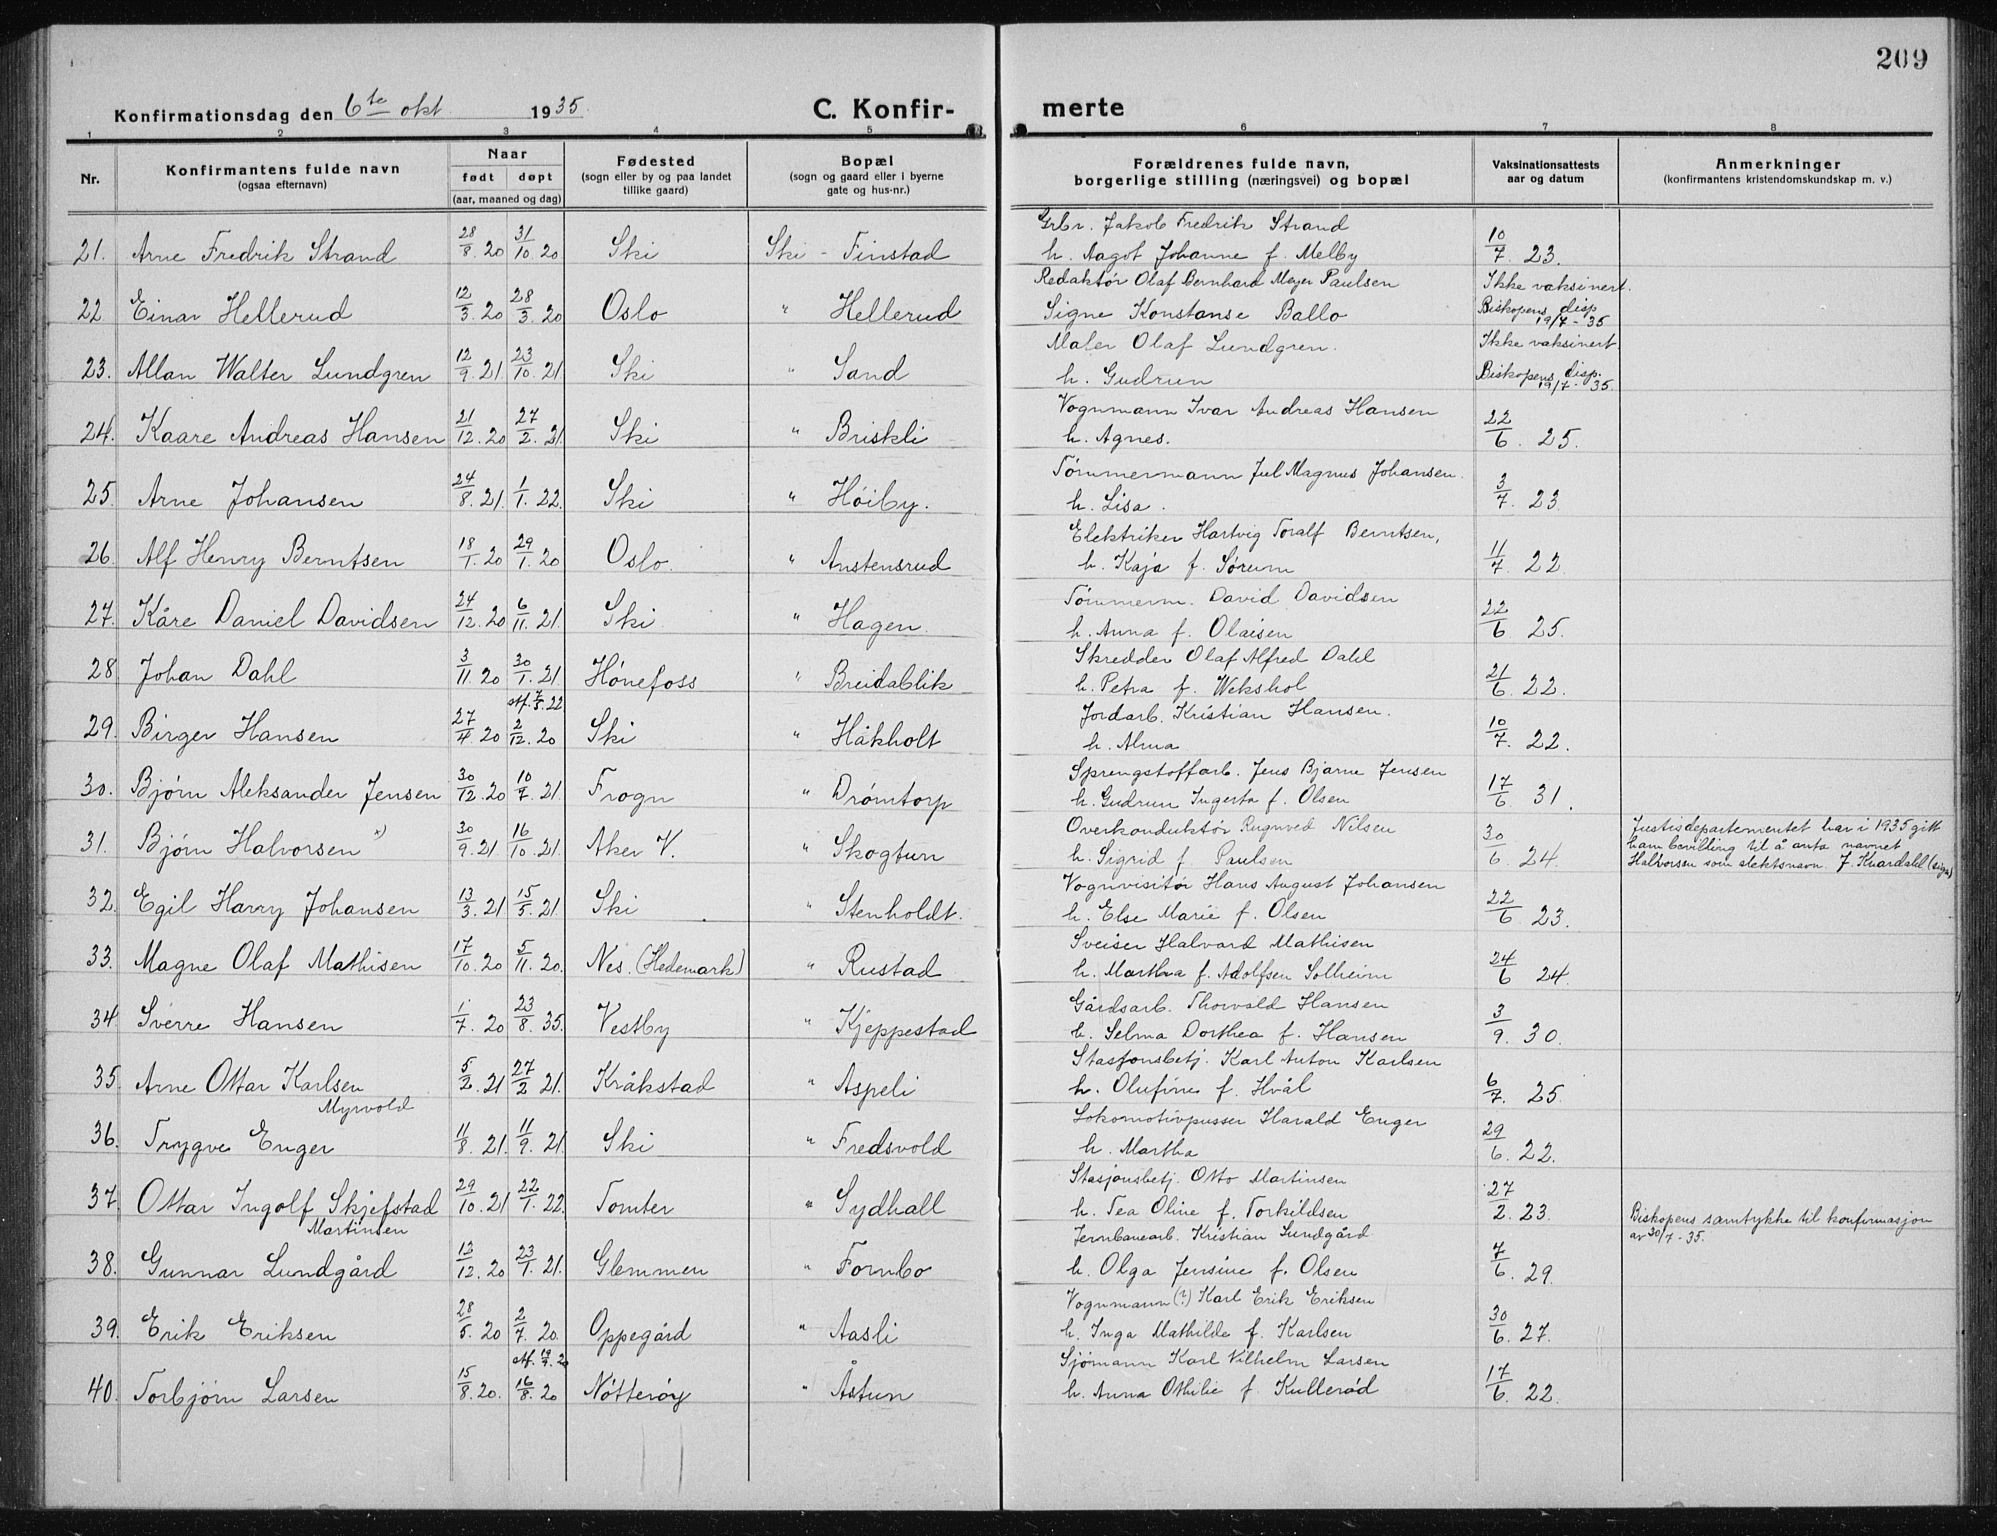 209
Konfirmationsdag den 6te okt. 1935. C. Konfir- merte
1 2 3 4 5 6 7 8
Nr. Konfirmantens fulde navn (ogsaa efternavn) Naar født døpt (aar, maaned og dag) Fødested (sogn eller by og paa landet tillike gaard) Bopæl (sogn og gaard eller i byerne gate og hus-nr.) Forældrenes fulde navn, borgerlige stilling (næringsvei) og bopæl Vaksinationsattests aar og datum Anmerkninger (konfirmantens kristendomskundskap m. v.)
21. Arne Fredrik Strand 28/8. 20 31/10. 20 Ski Ski - Finstad Grbr. Jakob Fredrik Strand
h. Aagot Johanne f. Melby 10/7 23.
22 Einar Hellerud 12/3. 20 28/3. 20 Oslo " Hellerud Redaktør Olaf Bernhard Meyer Paulsen Ikke vaksinert.
Signe Konstanse Ballo Biskopens disp 19/7 - 35
23. Allan Walter Lundgren 12/9. 21 23/10. 21 Ski " Sand Maler Olaf Lundgren. Ikke vaksinert.
h. Gudrun Biskopens disp. 19/7 - 35.
24. Kaare Andreas Hansen 21/12. 20 27/2. 21. Ski " Briskli Vognmann Ivar Andreas Hansen
h. Agnes. 22/6. 25.
25. Arne Johansen 24/8. 21. 1/1. 22. Ski " Høiby. Tømmermann Jul Magnus Johansen.
h. Lisa. 3/7. 23
26. Alf Henry Berntsen 18/1. 20 29/1. 20 Oslo. " Austensrud Elektriker Hartvig Toralf Berntsen,
h. Kaja f. Sørum 11/7 22.
27. Kåre Daniel Davidsen 24/12. 20 6/11. 21. Ski " Hagen. Tømmerm. David Davidsen
h. Anna f. Olaisen 22/6 25.
28 Johan Dahl 3/11. 20 30/1. 21 Hønefoss " Breidablik Skredder Olaf Alfred Dahl
h. Petra f. Wekshol 21/6. 22.
29. Birger Hansen 27/4. 20 stf. 7/5. 22 2/12. 20 Ski " Håkholt Jordarb. Kristian Hansen.
h. Alma 10/7. 22.
30. Bjørn Aleksander Jensen 30/12. 20 10/7. 21. Frogn " Drømtorp Sprengstoffarb. Jens Bjarne Jensen
h. Gudrun Ingerta f. Olsen 17/6 31.
31. Bjørn Halvorsen x) 30/9. 21 16/10. 21. Aker V. " Skogtun Overkonduktør Rugnved Nilsen
h. Sigrid f. Paulsen 30/6 24. Justisdepartementet har i 1935 gitt
ham bevilling til å anta navnet
Halvorsen som slektsnavn. J. Kvardahl (sign)
32. Egil Harry Johansen 13/3. 21 15/5. 21. Ski " Stenholdt. Vognvisitør Hans August Johansen
h. Else Marie f. Olsen 22/6 23.
33. Magne Olaf Mathisen 17/10. 20 5/11. 20. Nes (Hedemark) " Rustad Sveiser Halvard Mathisen
h. Martha f. Adolfsen Solheim 24/6 24.
34 Sverre Hansen 1/7. 20 23/8. 35. Vestby " Kjeppestad Gårdsarb. Thorvald Hansen
h. Selma Dorthea f. Hansen 3/9. 30.
35. Arne Ottar Karlsen 5/2. 21 27/2 21. Kråkstad " Aspeli Stasjonsbetj. Karl Anton Karlsen
Myrvold h. Olufine f. Hvål 6/7. 25.
36. Trygve Enger 11/8. 21. 11/9. 21. Ski " Fredsvold Lokomotivpusser Harald Enger
h. Martha 29/6. 22.
37. Ottar Ingolf Skjefstad 29/10. 21 22/1. 22. Tomter " Sydhall Stasjonsbetj. Otto Martinsen
Martinsen h. Tea Oline f. Torkildsen 27/2. 23. Biskopens samtykke til konfirmasjon
av 30/7 - 35.
38. Gunnar Lundgård 12/12. 20 23/1. 21. Glemmen " Fornbo Jernbanearb. Kristian Lundgård
h. Olga Jensine f. Olsen 7/6. 29.
39. Erik Eriksen 28/5. 20 2/7. 20. Oppegård " Aasli Vognmann (?) Karl Erik Eriksen
h. Inga Mathilde f. Karlsen 30/6. 27.
40. Torbjørn Larsen 15/8. 20. stf. 19/9. 20 16/8. 20 Nøtterøy " Åstun Sjømann Karl Vilhelm Larsen
h. Anna Othilie f. Kullerød 17/6. 22.